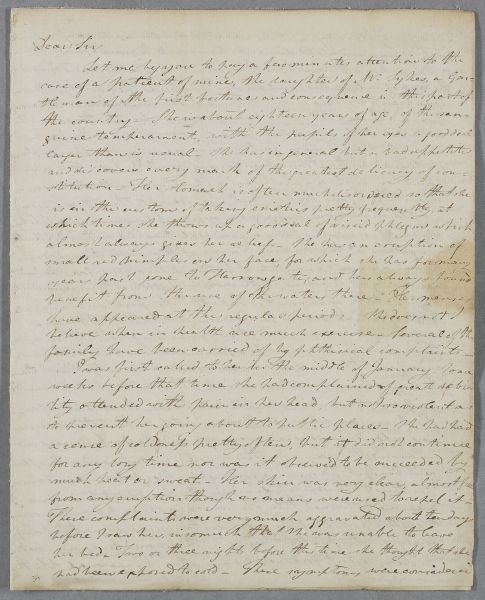 Dear Sir
Let me beg you to pay a few minutes attention to the
case of a patient of mine, the daughter of Mr. Sykes, a Gen-
tleman of the first fortune and consequence in this part of
the country. She is about eighteen years of age, of the san-
guine temperament, with the pupils of her eyes a good deal
larger than is usual. She has in general but a bad appetite
and discovers every mark of the greatest delicacy of con-
stitution. Her stomach is often much disordered so that she
is in the custom of taking emetics pretty frequently, at
which times she throws up a good deal of viscid phlegm which
almost always gives her relief. She has an eruption of
small red pimples on her face for which she has for many
years past gone to Harrowgate, and has always found
benefit from the use of the waters there. Her menses
have appeared at the regular periods. She does not I
believe when in health use much exercise. Several of the
family have been carried of by phthisical complaints.
I was first called to her in the middle of January.
weeks before that time she had complained of great debi-
lity, attended with pain in her head, but not so violent as
to prevent her going about to public places. She had had
a sense of coldness pretty often, but it did not continue
for any long time nor was it observed to be succeeded by
much heat or sweat. Her skin was very clear, almost free
from any eruption though no means were used to repel it.
These complaints were very much aggravated about ten days
before I saw her, insomuch that she was unable to leave
her bed. Two or three nights before the time she thought that she
had been exposed to cold. These symptoms were considered